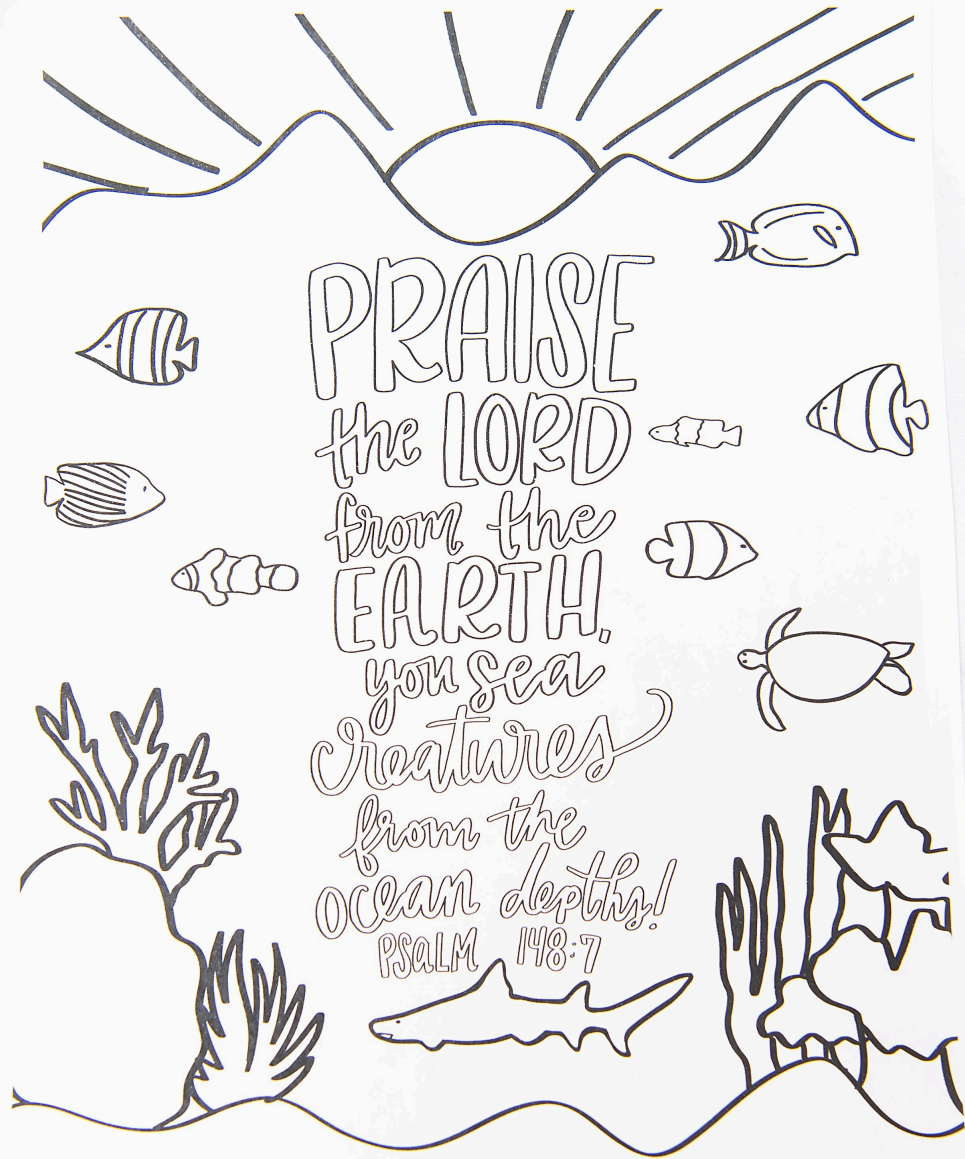 PRAISE
the LORD
from the
EARTH,
you sea
creatures
from the
ocean depths!
PSALM 148:7